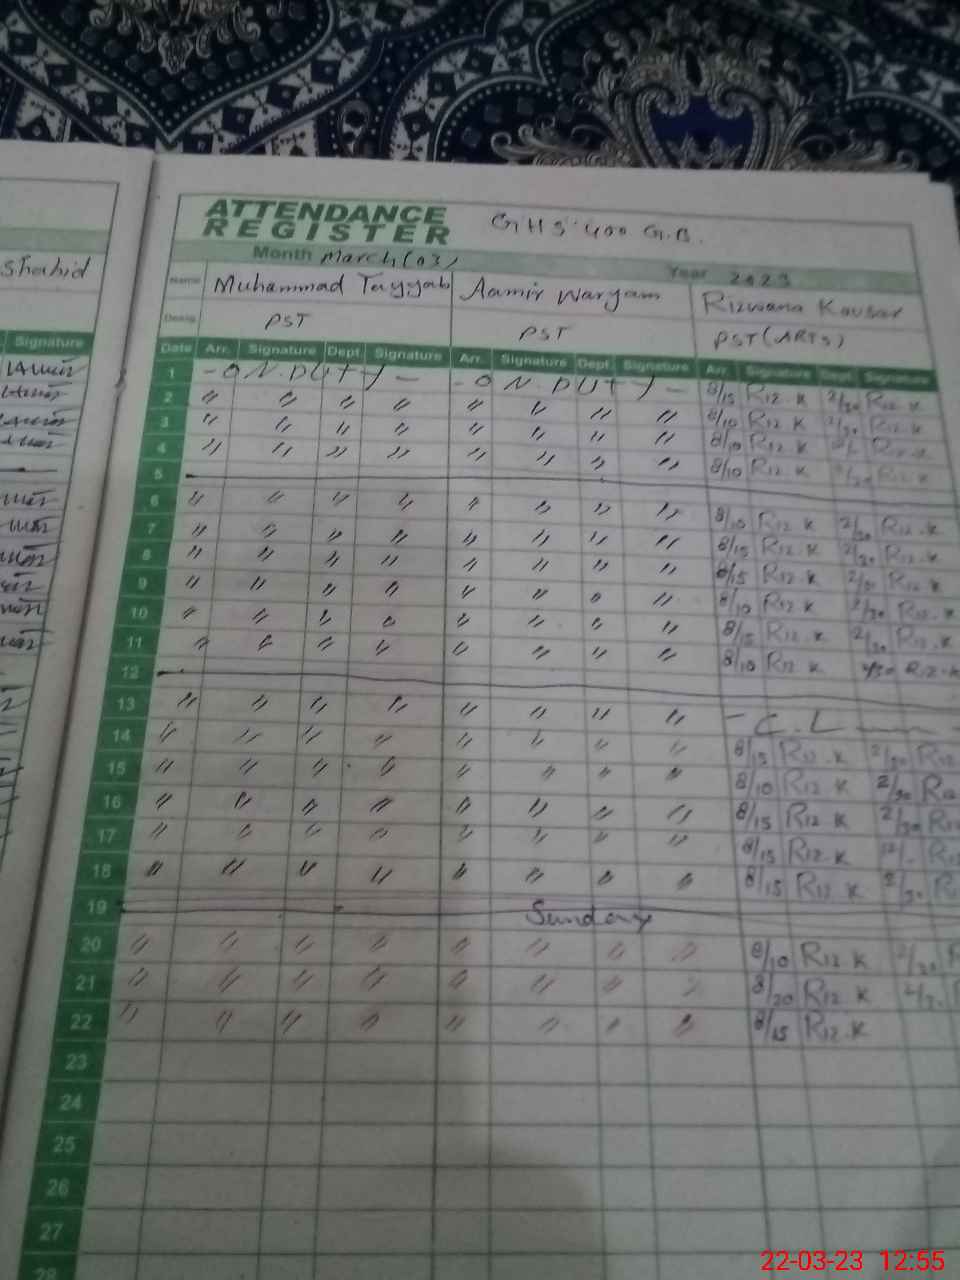 Shahid
Signature
ATTENDANCE
REGISTER
GHS 400 G.B.
Month March (03) Year 2023
Name Muhammad Tayyab Aamir Waryam Rizwana Kausar
Desig. PST PST PST (ARTS)
Date Arr. Signature Dept. Signature Arr. Signature Dept. Signature Arr. Signature Dept. Signature
1 - ON. DUTY - - ON. DUTY - 8/15 Riz. K 2/30 Riz. K
2 〃 〃 〃 〃 〃 〃 〃 〃 8/10 Riz. K 2/30 Riz. K
3 〃 〃 〃 〃 〃 〃 〃 〃 8/10 Riz. K Riz. K
4 〃 〃 〃 〃 〃 〃 〃 〃 8/10 Riz. K Riz. K
5
6 〃 〃 〃 〃 〃 〃 〃 〃 8/10 Riz. K 2/30 Riz. K
7 〃 〃 〃 〃 〃 〃 〃 〃 8/15 Riz. K 2/30 Riz. K
8 〃 〃 〃 〃 〃 〃 〃 〃 8/15 Riz. K 2/30 Riz. K
9 〃 〃 〃 〃 〃 〃 〃 〃 8/10 Riz. K 2/30 Riz. K
10 〃 〃 〃 〃 〃 〃 〃 〃 8/15 Riz. K 2/30 Riz. K
11 〃 〃 〃 〃 〃 〃 〃 〃 8/10 Riz. K Riz. K
12
13 〃 〃 〃 〃 〃 〃 〃 〃 - C. L -
14 〃 〃 〃 〃 〃 〃 〃 〃 8/15 Riz. K 2/30 Riz
15 〃 〃 〃 〃 〃 〃 〃 〃 8/10 Riz. K 2/30 Riz
16 〃 〃 〃 〃 〃 〃 〃 〃 8/15 Riz. K 2/30 Riz
17 〃 〃 〃 〃 〃 〃 〃 〃 8/15 Riz. K 12/- Ri
18 〃 〃 〃 〃 〃 〃 〃 〃 8/15 Riz. K 2/30 R
19 Sunday
20 〃 〃 〃 〃 〃 〃 〃 〃 8/10 Riz. K R
21 〃 〃 〃 〃 〃 〃 〃 〃 8/20 Riz. K
22 〃 〃 〃 〃 〃 〃 〃 〃 8/15 Riz. K
23
24
25
26
27
28
22-03-23 12:55